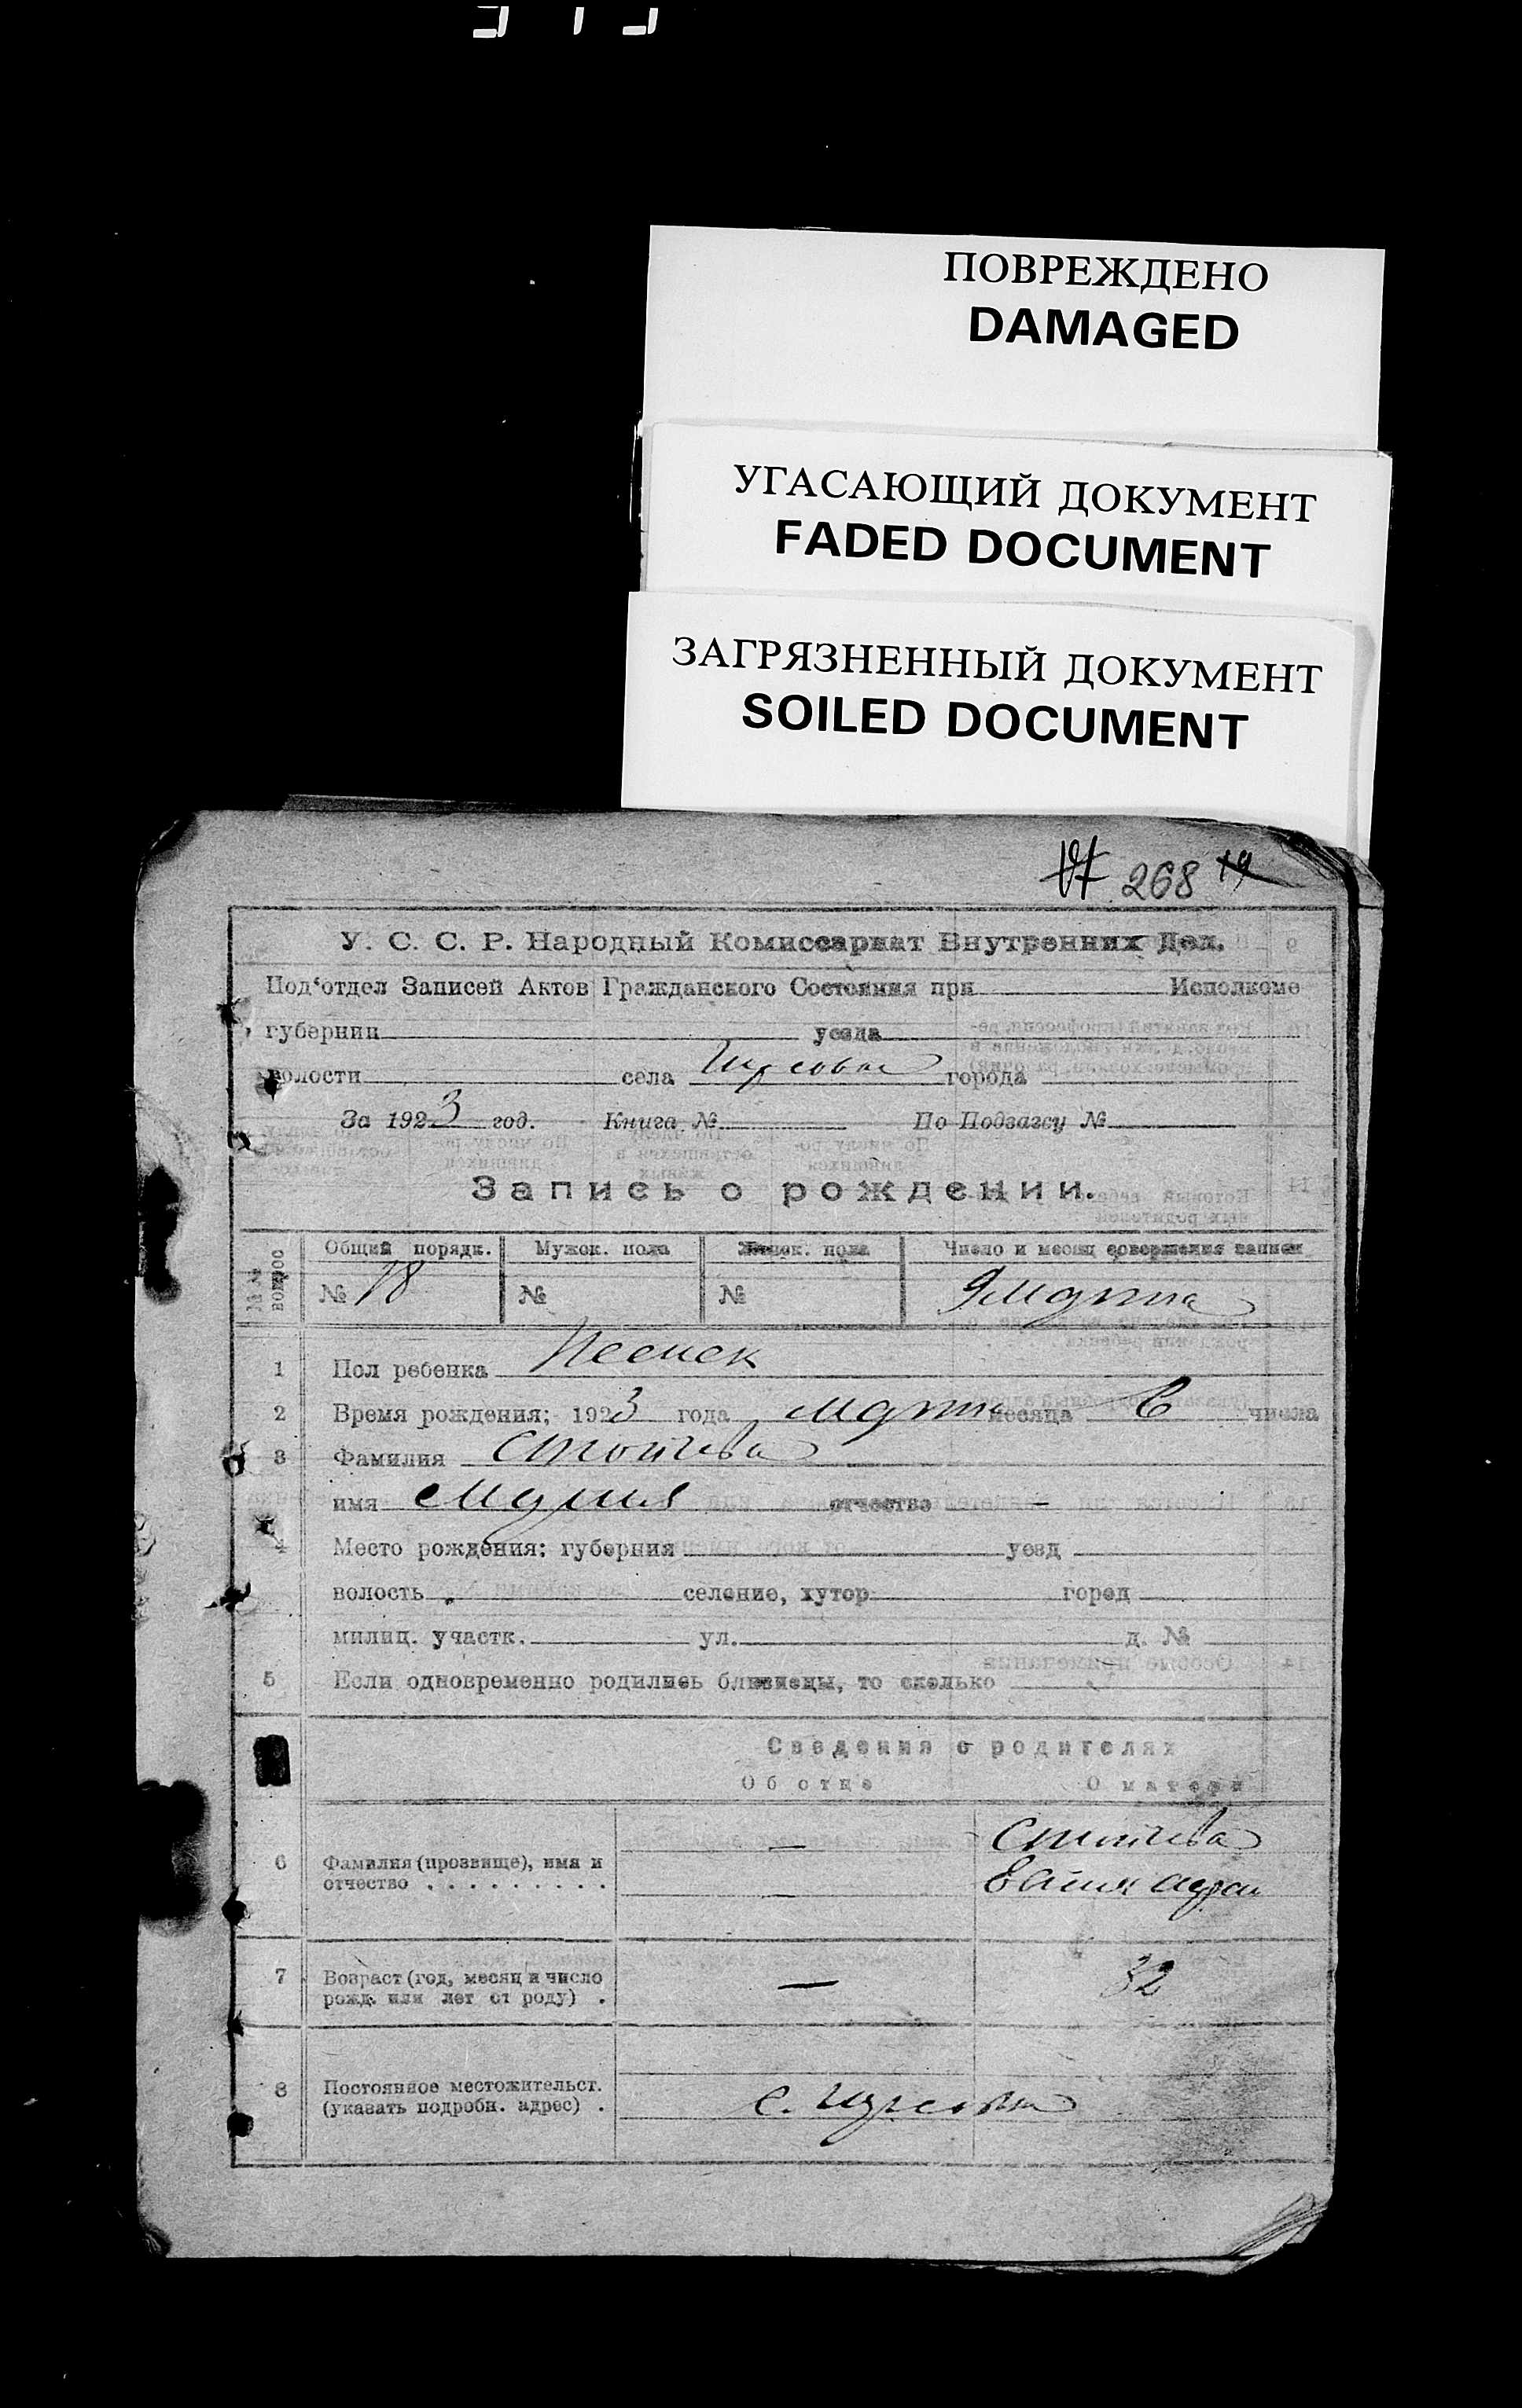 ПОВРЕЖДЕНО
DAMAGED
УГАСАЮЩИЙ ДОКУМЕНТ
FADED DOCUMENT
ЗАГРЯЗНЕННЫЙ ДОКУМЕНТ
SOILED DOCUMENT
268 19
У. С. С. Р. Народный Комиссариат Внутренних Дел.
Под‘отдел Записей Актов Гражданского Состояния при Исполкоме
губернии уезда
волости села города
За 1923 год. Книга № По Подзагсу №
Запись о рождении.
№№ вопрос
Общий порядк. Мужск. пола Женск. пола Число и месяц совершения записи
№ 18 № № 9 марта
1 Пол ребенка Женск
2 Время рождения; 1923 года марта месяца 6 числа
3 Фамилия Стойчева
имя Мария отчество —
4 Место рождения; губерния уезд
волость селение, хутор город
милиц. участк. ул. д. №
5 Если одновременно родились близнецы, то сколько
Сведения о родителях
Об отце О матери
6 Фамилия (прозвище), имя и отчество . . . . . . . . . — — Стойчева
7 Возраст (год, месяц и число рожд. или лет от роду) . — 32
8 Постоянное местожительст. (указать подробн. адрес) . с.